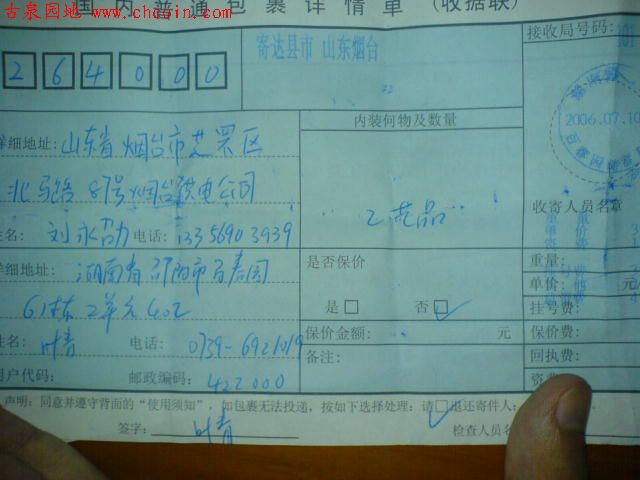 古泉园地
www.chcoin.com
国内普通包裹详情单 (收据联)
接收局号码: 101
264000
寄达县市 山东烟台
2006.07.10
内装何物及数量
工艺品
详细地址: 山东省烟台市芝罘区
北马路87号烟台供电公司
姓名: 刘永 电话: 13356903939
收寄人员名章
详细地址: 湖南省邵阳市百春园
61栋2单元402
姓名: 叶青 电话: 0739-6921019
用户代码: 邮政编码: 422000
是否保价
是 □ 否 □
保价金额: 元
备注:
重量:
单价: 元
挂号费:
保价费:
回执费:
资费
声明:同意并遵守背面的“使用须知”,如包裹无法投递,按如下选择处理:请□退还寄件人;
签字: 叶青
检查人员名